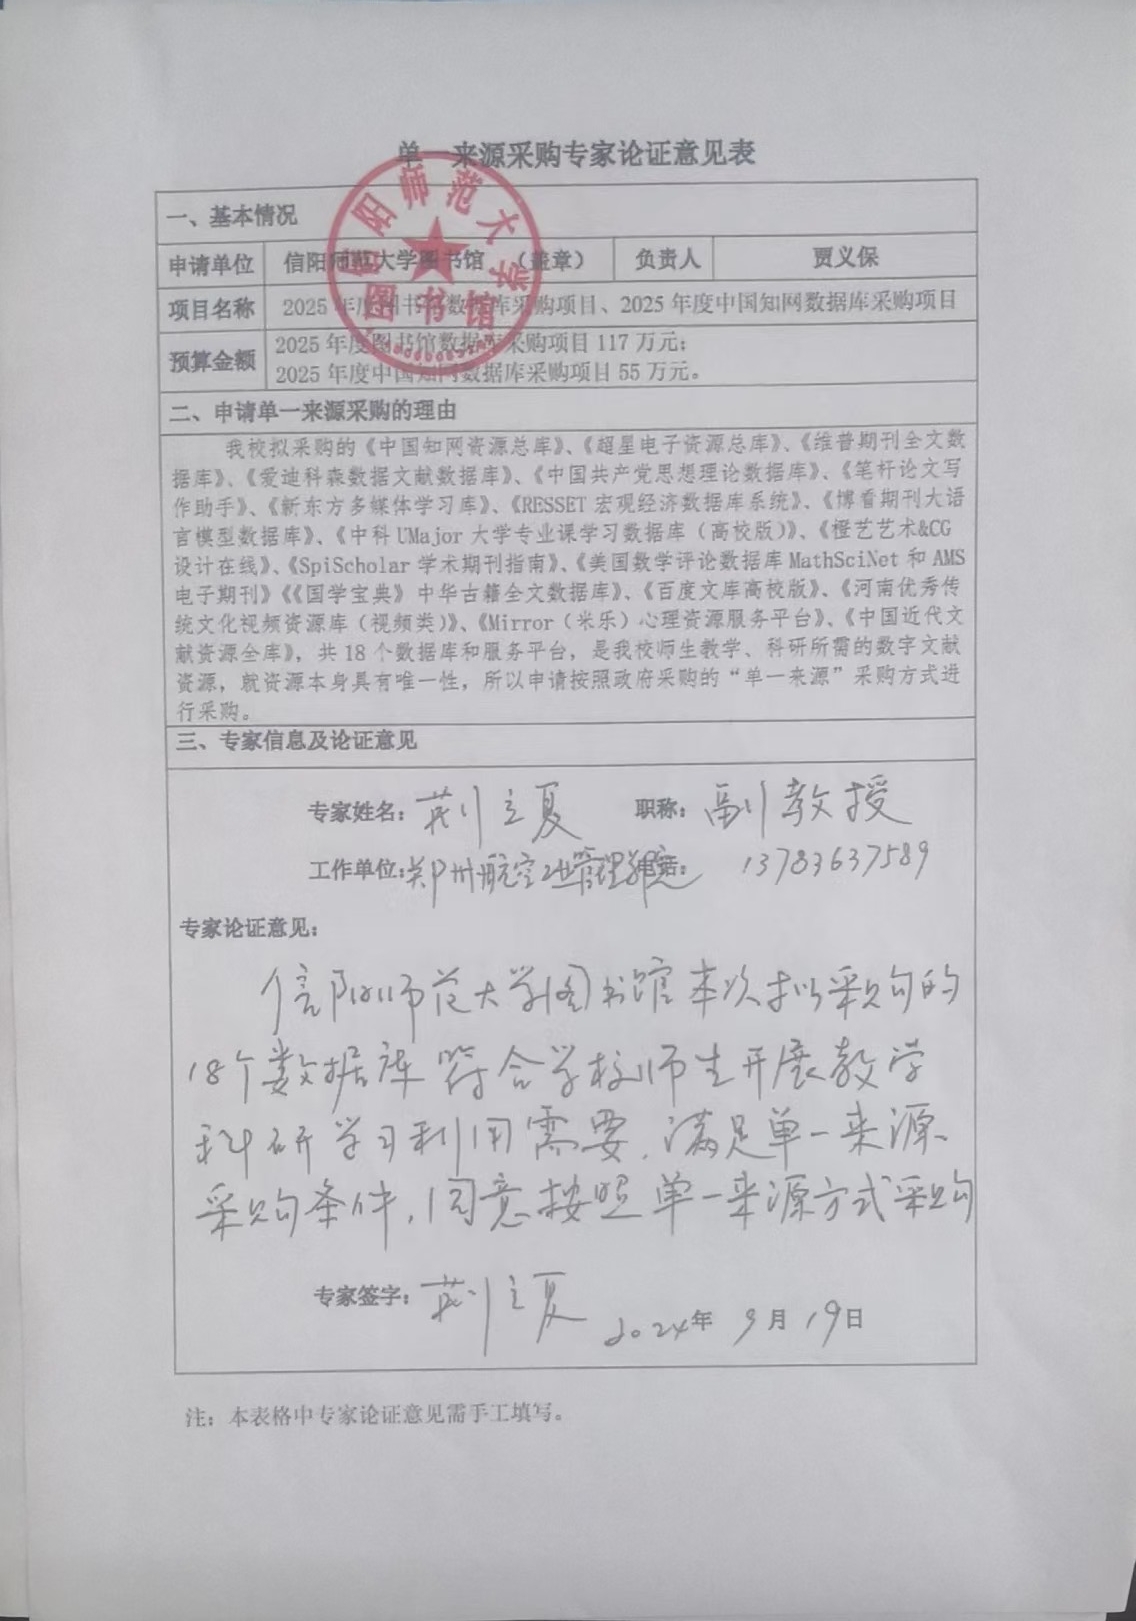 单一来源采购专家论证意见表
一、基本情况
申请单位 信阳师范大学图书馆 （盖章） 负责人 贾义保
项目名称 2025年度图书馆数据库采购项目、2025年度中国知网数据库采购项目
预算金额 2025年度图书馆数据库采购项目117万元；
2025年度中国知网数据库采购项目55万元。
信阳师范大学
图书馆
二、申请单一来源采购的理由
我校拟采购的《中国知网资源总库》、《超星电子资源总库》、《维普期刊全文数
据库》、《爱迪科森数据文献数据库》、《中国共产党思想理论数据库》、《笔杆论文写
作助手》、《新东方多媒体学习库》、《RESSET宏观经济数据库系统》、《博看期刊大语
言模型数据库》、《中科UMajor大学专业课学习数据库（高校版）》、《橙艺艺术&CG
设计在线》、《SpiScholar学术期刊指南》、《美国数学评论数据库MathSciNet和AMS
电子期刊》《《国学宝典》中华古籍全文数据库》、《百度文库高校版》、《河南优秀传
统文化视频资源库（视频类）》、《Mirror（米乐）心理资源服务平台》、《中国近代文
献资源全库》，共18个数据库和服务平台，是我校师生教学、科研所需的数字文献
资源，就资源本身具有唯一性，所以申请按照政府采购的“单一来源”采购方式进
行采购。
三、专家信息及论证意见
专家姓名：荆立夏 职称：副教授
工作单位：郑州航空工业管理学院 电话：13783637589
专家论证意见：
信阳师范大学图书馆本次拟采购的
18个数据库符合学校师生开展教学
科研学习利用需要，满足单一来源
采购条件，同意按照单一来源方式采购
专家签字：荆立夏 2024年9月19日
注：本表格中专家论证意见需手工填写。